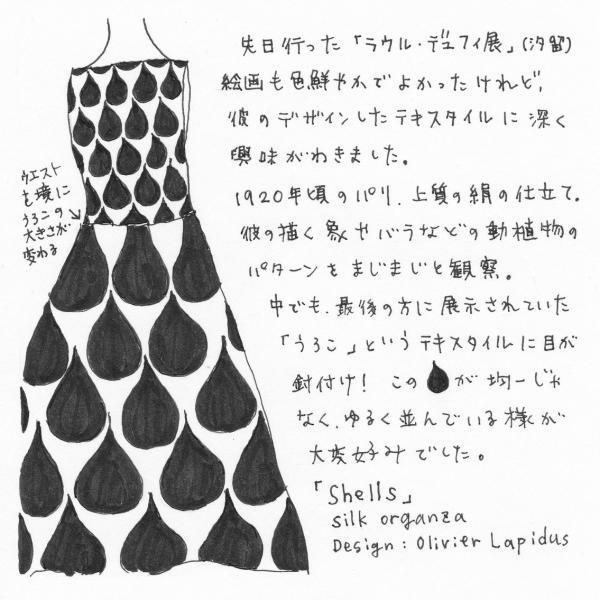 先日行った「ラウル・デュフィ展」(汐留)
絵画も色鮮やかでよかったけれど、
彼のデザインしたテキスタイルに深く
興味がわきました。
1920年頃のパリ、上質の絹の仕立て。
彼の描く象やバラなどの動植物の
パターンをまじまじと観察。
中でも、最後の方に展示されていた
「うろこ」というテキスタイルに目が
釘付け! この が均一じゃ
なく、ゆるく並んでいる様が
大変好みでした。
「Shells」
silk organza
Design : Olivier Lapidus
ウエスト
を境に
うろこの
大きさが
変わる